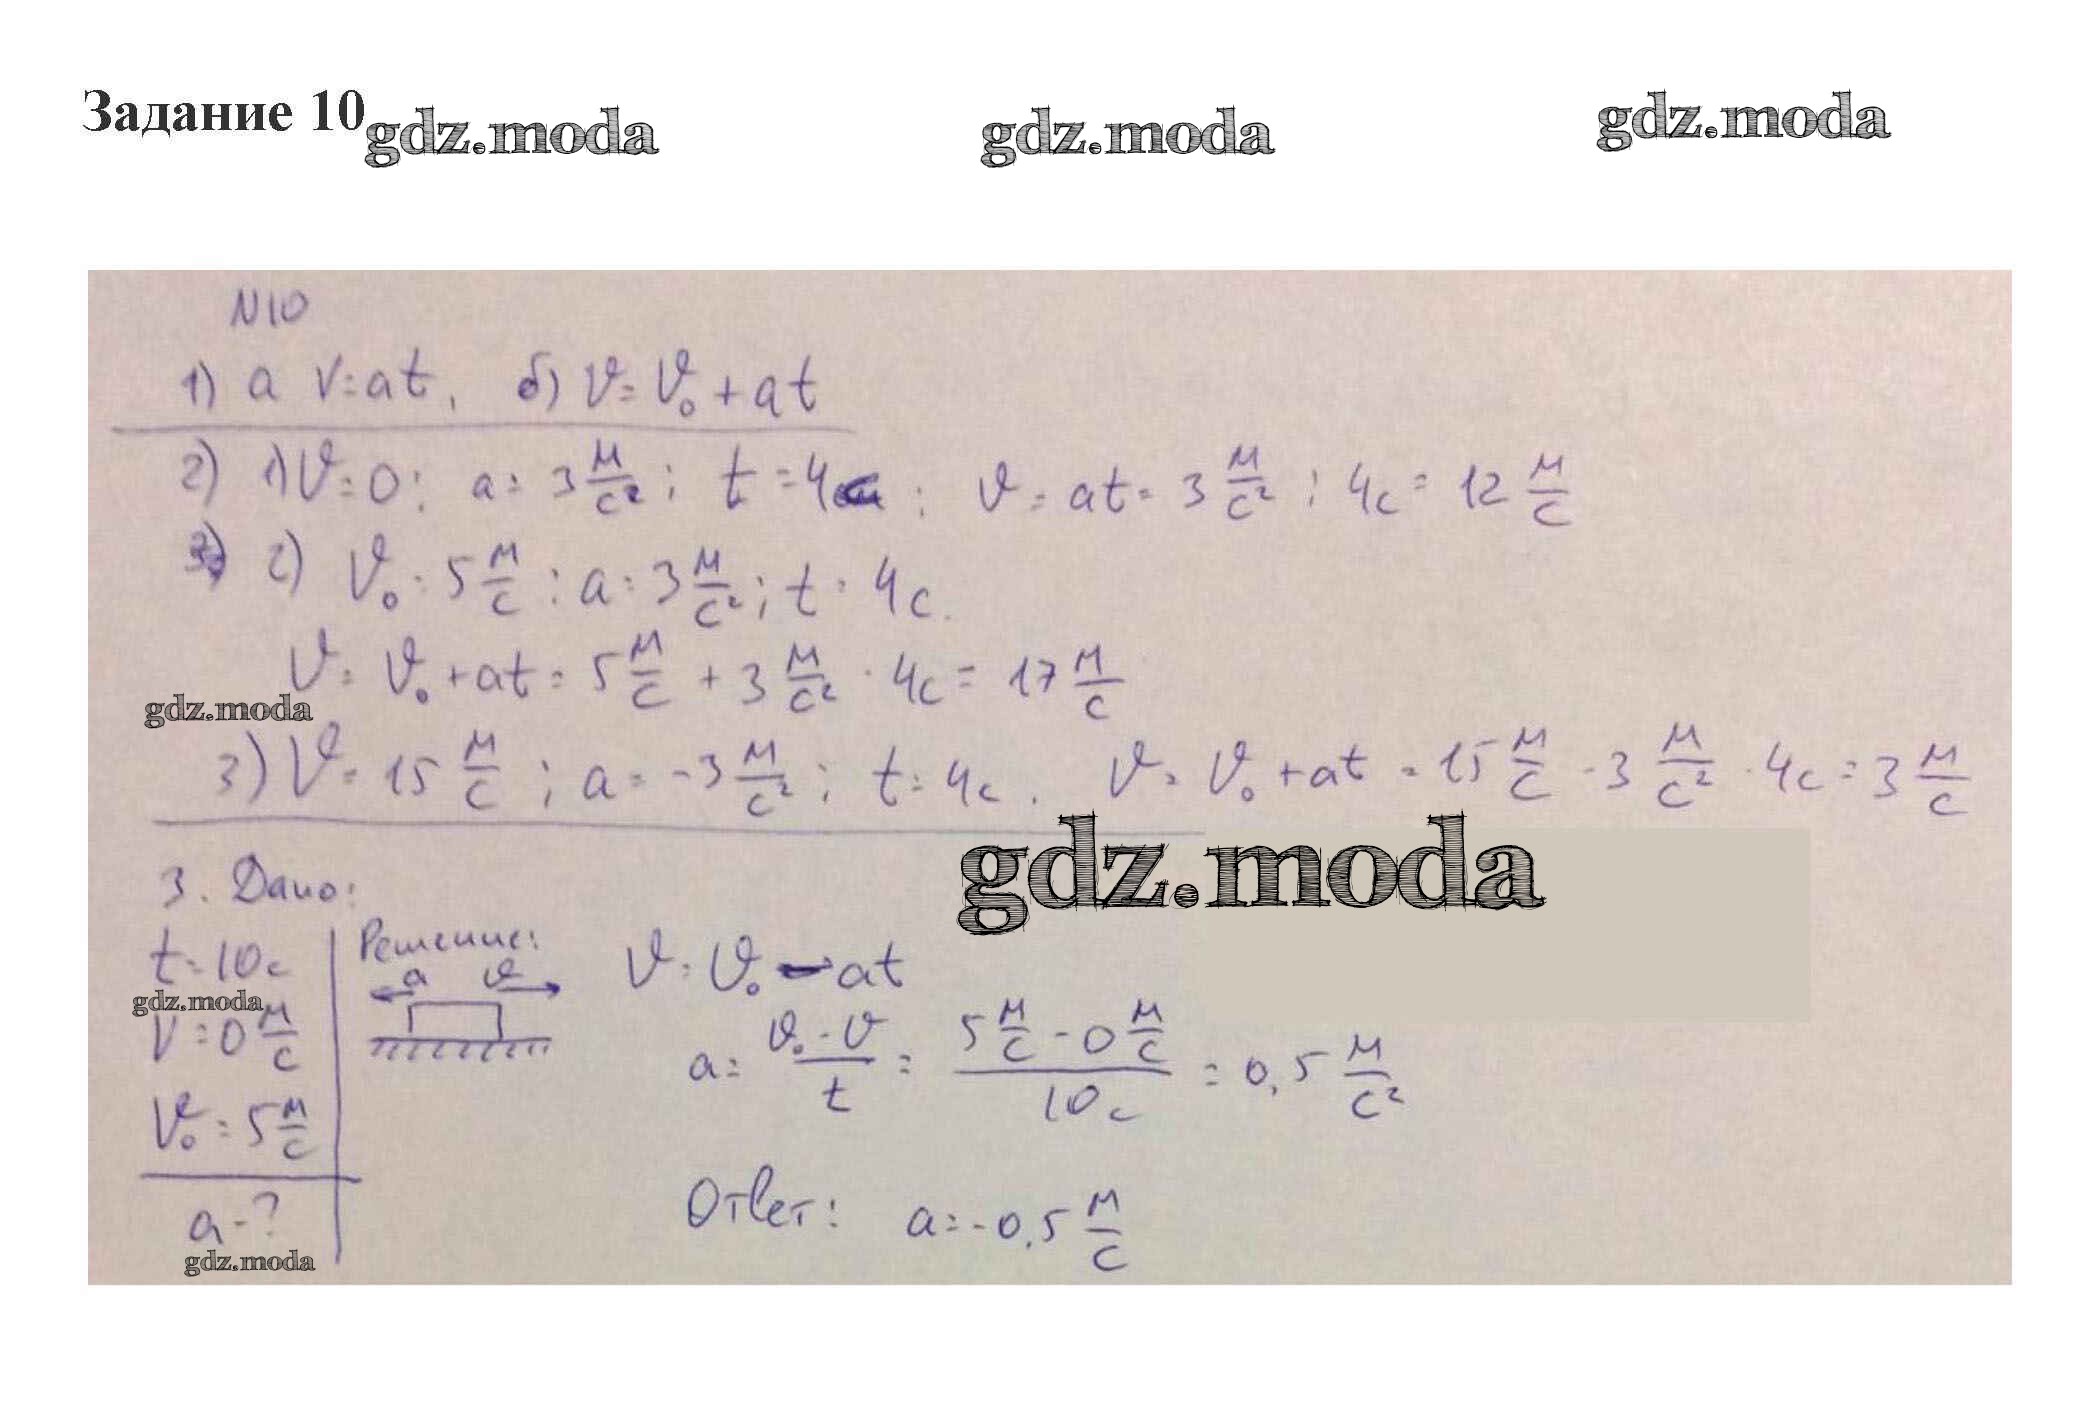 Задание 10
gdz.moda gdz.moda gdz.moda
N10
1) а v=at, б) v=v₀+at
2) 1) v=0; a=3 м/с²; t=4с; v=at=3 м/с² ; 4с=12 м/с
2) v₀=5 м/с; a=3 м/с²; t=4с.
v=v₀+at=5 м/с+3 м/с²·4с=17 м/с
gdz.moda
3) v=15 м/с; a=-3 м/с²; t=4с. v=v₀+at=15 м/с-3 м/с²·4с=3 м/с
gdz.moda
3. Дано:
t=10с
gdz.moda
v=0 м/с
v₀=5 м/с
a-?
gdz.moda
Решение:
a v
v=v₀-at
a=(v₀-v)/t=(5 м/с-0 м/с)/10с=0,5 м/с²
Ответ: a=-0,5 м/с